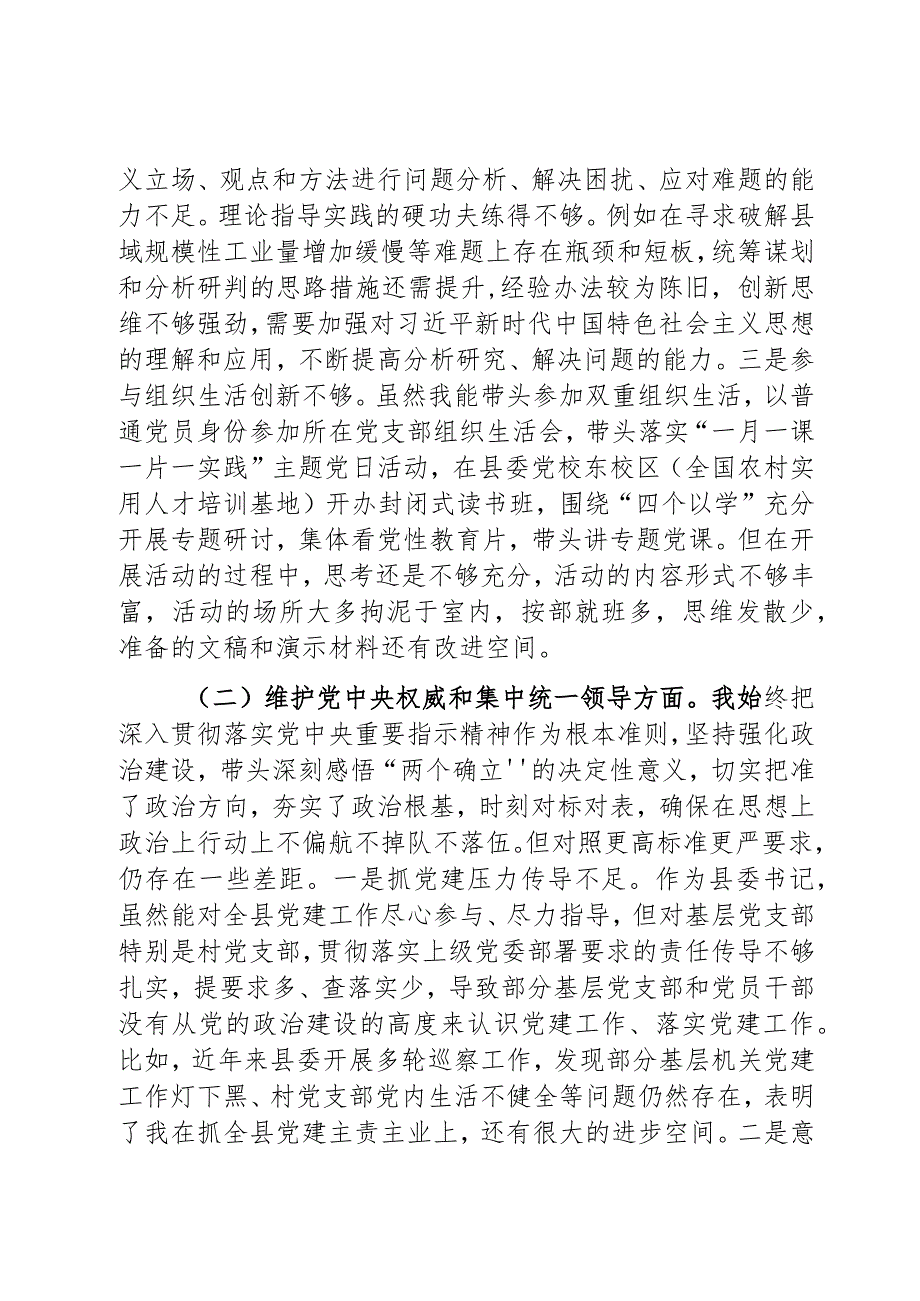 义立场、观点和方法进行问题分析、解决困扰、应对难题的能
力不足。理论指导实践的硬功夫练得不够。例如在寻求破解县
域规模性工业量增加缓慢等难题上存在瓶颈和短板，统筹谋划
和分析研判的思路措施还需提升,经验办法较为陈旧，创新思
维不够强劲，需要加强对习近平新时代中国特色社会主义思想
的理解和应用，不断提高分析研究、解决问题的能力。三是参
与组织生活创新不够。虽然我能带头参加双重组织生活，以普
通党员身份参加所在党支部组织生活会，带头落实“一月一课
一片一实践”主题党日活动，在县委党校东校区（全国农村实
用人才培训基地）开办封闭式读书班，围绕“四个以学”充分
开展专题研讨，集体看党性教育片，带头讲专题党课。但在开
展活动的过程中，思考还是不够充分，活动的内容形式不够丰
富，活动的场所大多拘泥于室内，按部就班多，思维发散少，
准备的文稿和演示材料还有改进空间。
（二）维护党中央权威和集中统一领导方面。我始终把
深入贯彻落实党中央重要指示精神作为根本准则，坚持强化政
治建设，带头深刻感悟“两个确立''的决定性意义，切实把准
了政治方向，夯实了政治根基，时刻对标对表，确保在思想上
政治上行动上不偏航不掉队不落伍。但对照更高标准更严要求，
仍存在一些差距。一是抓党建压力传导不足。作为县委书记，
虽然能对全县党建工作尽心参与、尽力指导，但对基层党支部
特别是村党支部，贯彻落实上级党委部署要求的责任传导不够
扎实，提要求多、查落实少，导致部分基层党支部和党员干部
没有从党的政治建设的高度来认识党建工作、落实党建工作。
比如，近年来县委开展多轮巡察工作，发现部分基层机关党建
工作灯下黑、村党支部党内生活不健全等问题仍然存在，表明
了我在抓全县党建主责主业上，还有很大的进步空间。二是意